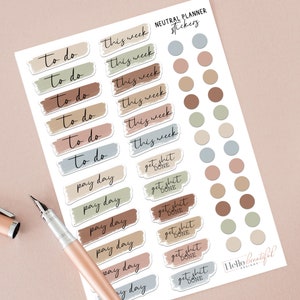 NEUTRAL PLANNER
stickers
to do
this week
to do
this week
to do
this week
to do
this week
to do
this week
to do
this week
pay day
get shit
DONE
pay day
get shit
DONE
pay day
get shit
DONE
pay day
get shit
DONE
pay day
get shit
DONE
pay day
get shit
DONE
Hello beautiful